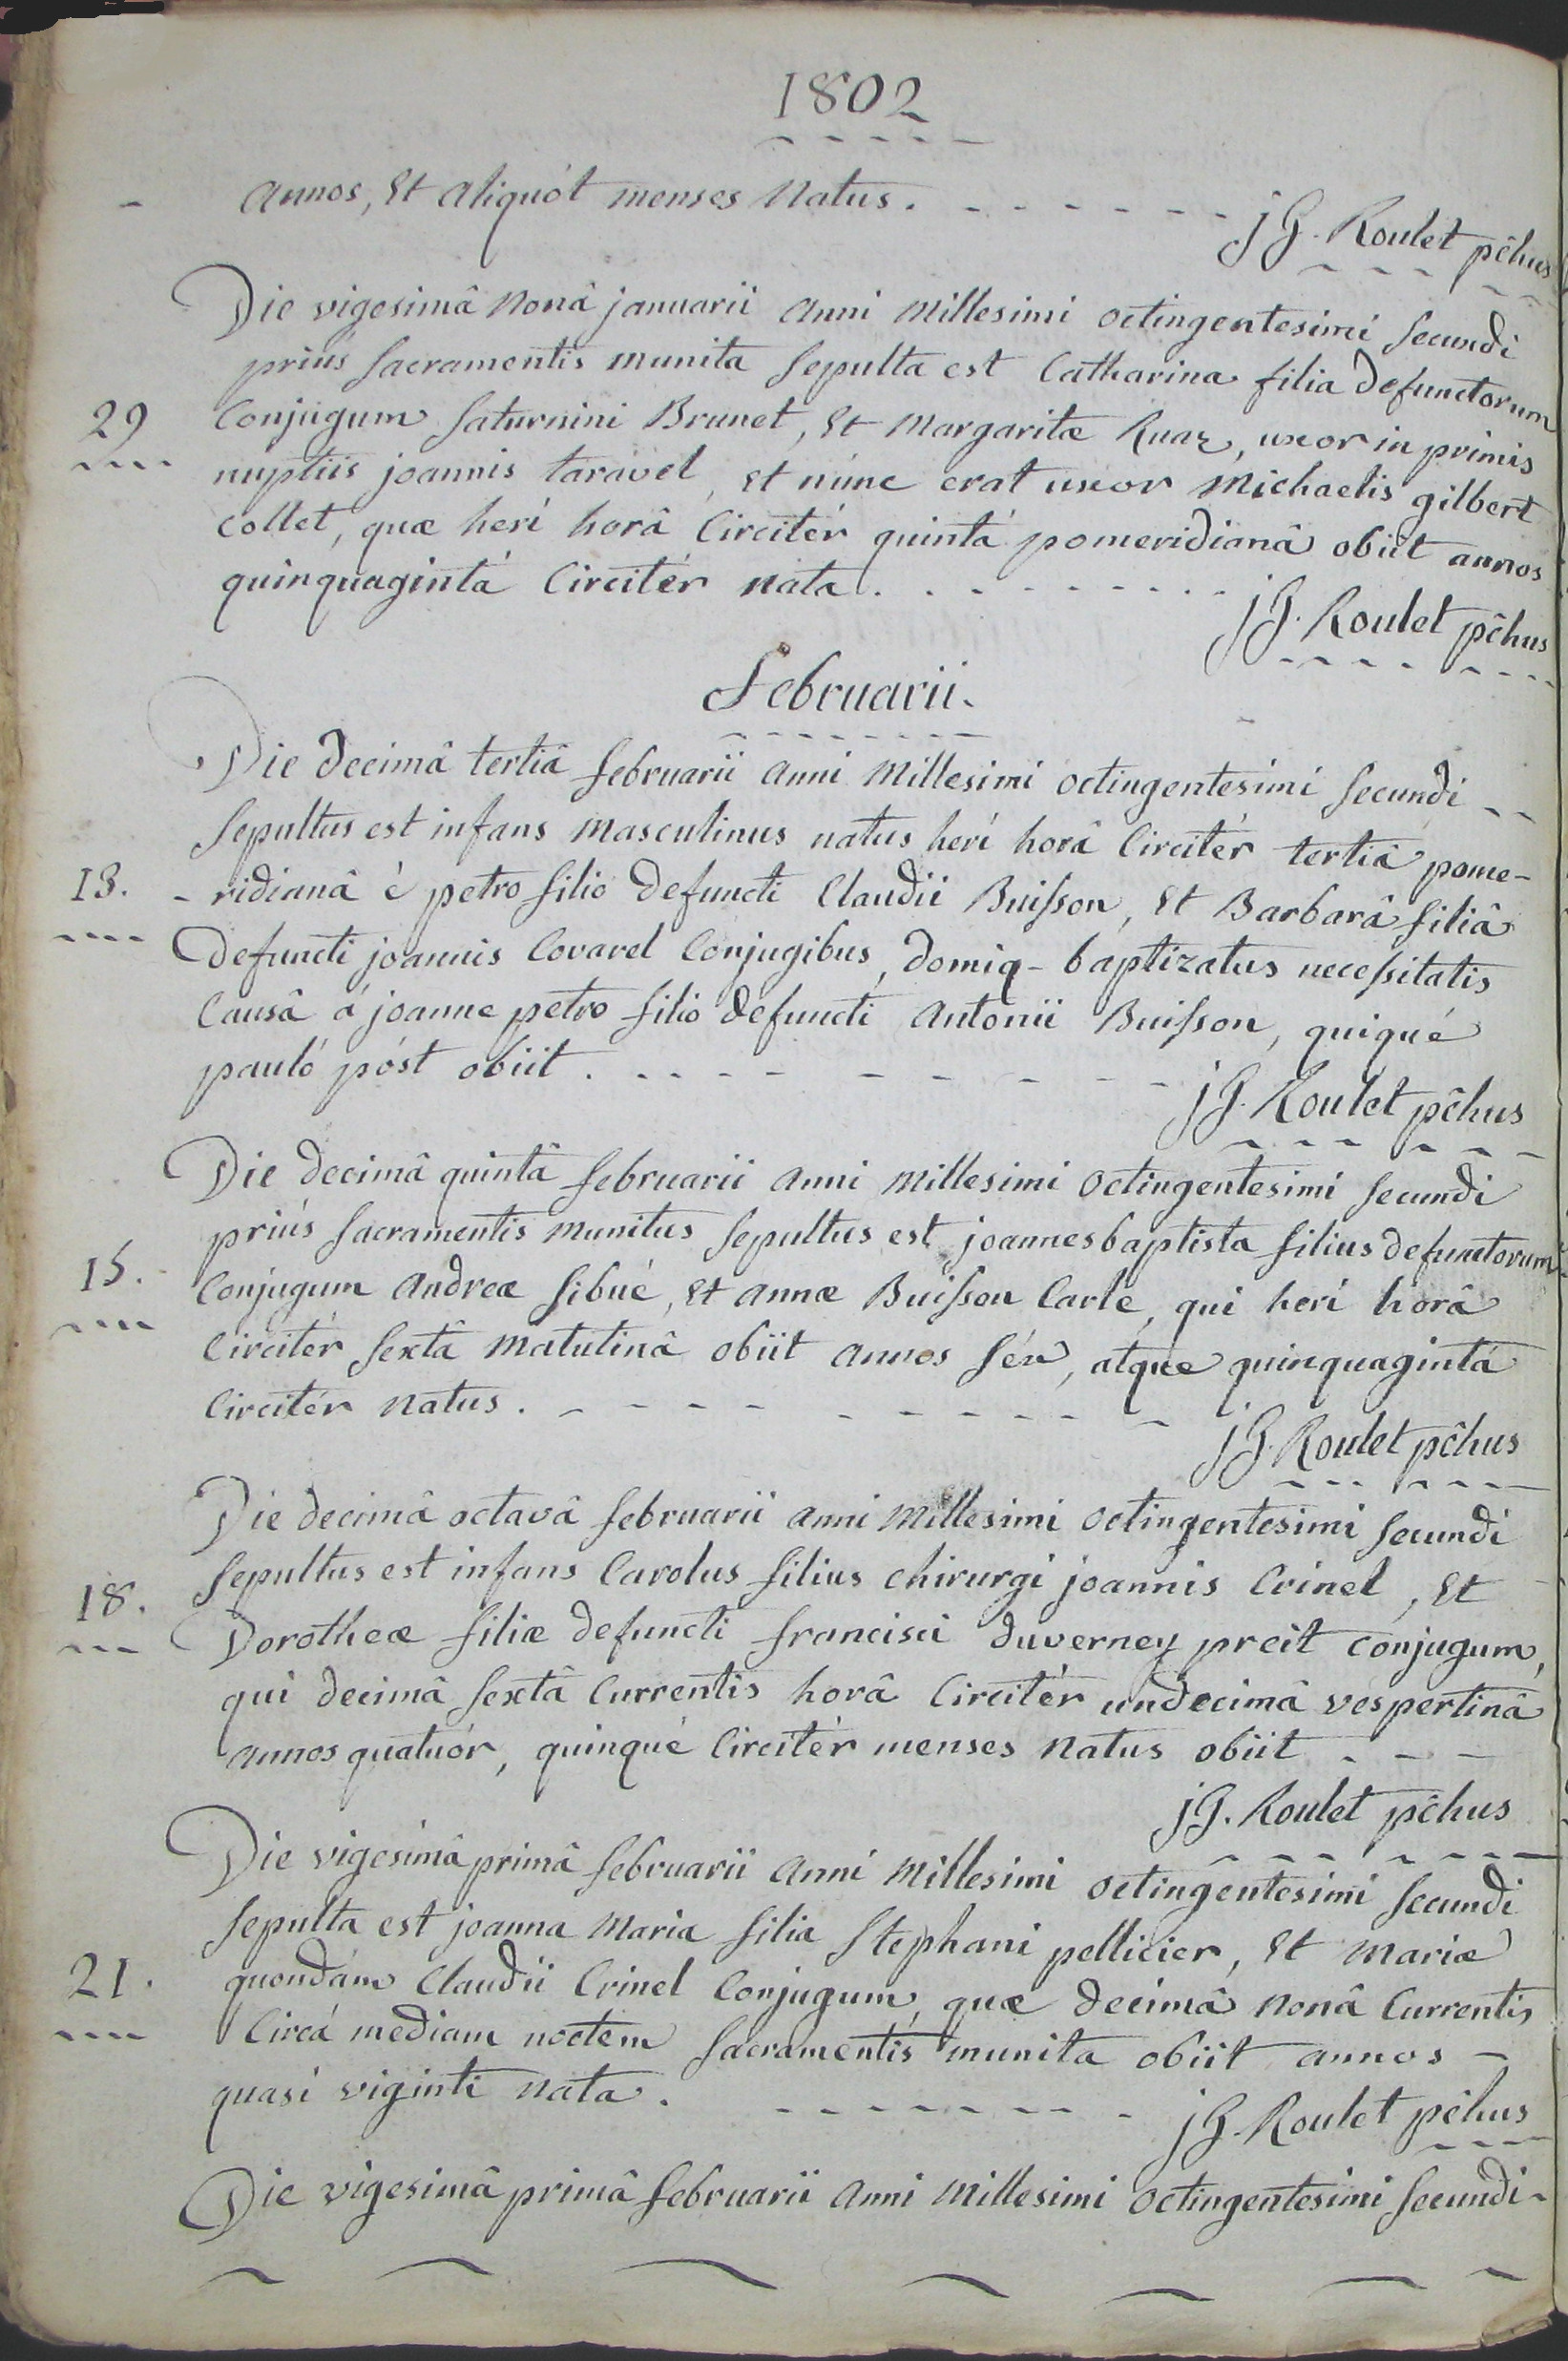 1802
- annos, Et aliquót menses natus.
jG. Roulet pĉhus
Die vigesimâ nonâ januarii anni millesimi octingentesimi secundi
priús sacramentis munita sepulta est Catharina filia defunctorum
29 Conjugum Saturnini Brunet, Et Margaritæ Ruaz, uxor in primis
nuptiis joannis taravel, Et núnc erat uxor Michaelis gilbert
collet, quæ herí horâ Circitér quintâ pomeridianâ obiit annos
quinquagintá Circitér nata.
jG. Roulet pĉhus
Februarii.
Die decimâ tertiâ februarii anni millesimi octingentesimi secundi
sepultus est infans masculinus natus herí horâ Circitér tertiâ pome-
13. - ridianâ é petro filio defuncti Claudii Buisson, Et Barbarâ filiâ
defuncti joannis Coravel Conjugibus, domiq- baptizatus necessitatis
Causâ á joanne petro filio defuncti Antonii Buisson, quiqué
pauló póst obiit.
jG. Roulet pĉhus
Die decimâ quintâ februarii anni millesimi octingentesimi secundi
priús sacramentis munitus sepultus est joannesbaptista filius defunctorum
15. Conjugum Andreæ Sibué, Et annæ Buisson Carle, qui herí horâ
Circitér sextâ matutinâ obiit annos séx, atque quinquagintá
Circitér natus.
jG. Roulet pĉhus
Die decimâ octavâ februarii anni millesimi octingentesimi secundi
sepultus est infans Carolus filius chirurgi joannis Crinel, Et
18. Dorotheæ filiæ defuncti francisci duverney preit conjugum,
qui decimâ sextâ Currentis horâ Circitér undecimâ vespertinâ
annos quatuór, quinqué Circitér menses natus obiit
jG. Roulet pĉhus
Die vigesimâ primâ februarii anni millesimi octingentesimi secundi
sepulta est joanna Maria filia Stephani pellicier, Et mariæ
21. quondám Claudii Crinel Conjugum, quæ decimâ nonâ Currentis
Circá mediam noctem sacramentis munita obiit annos -
quasi viginti nata.
jG. Roulet pĉhus
Die vigesimâ primâ februarii anni millesimi octingentesimi secundi-